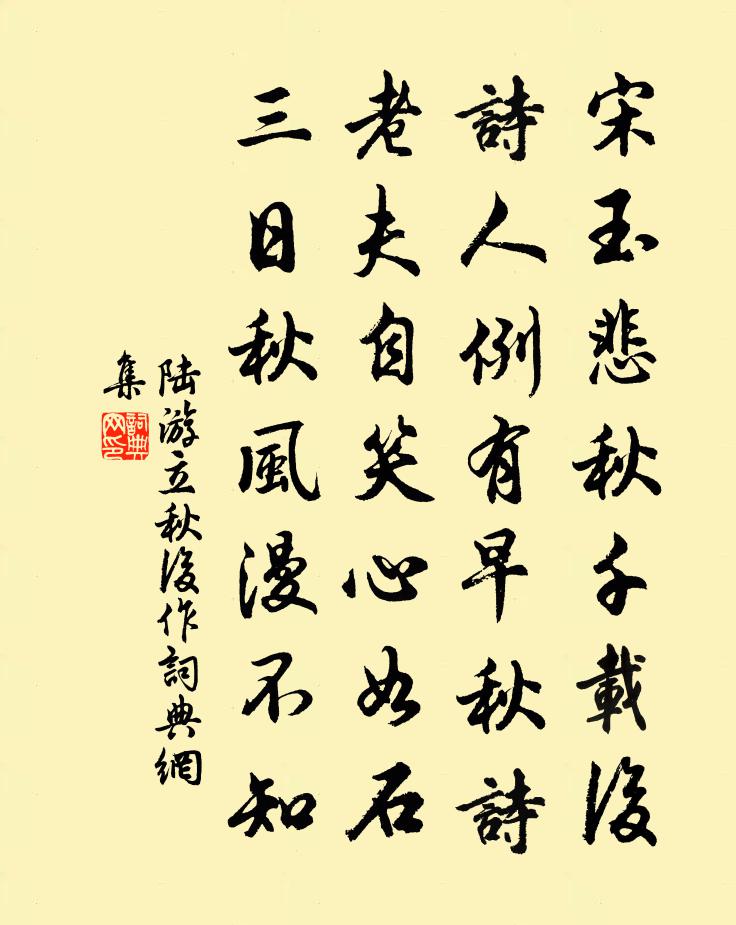 宋玉悲秋千載後
詩人例有早秋詩
老夫自笑心如石
三日秋風漫不知
陆游立秋後作詞典網
集
詞典
网印